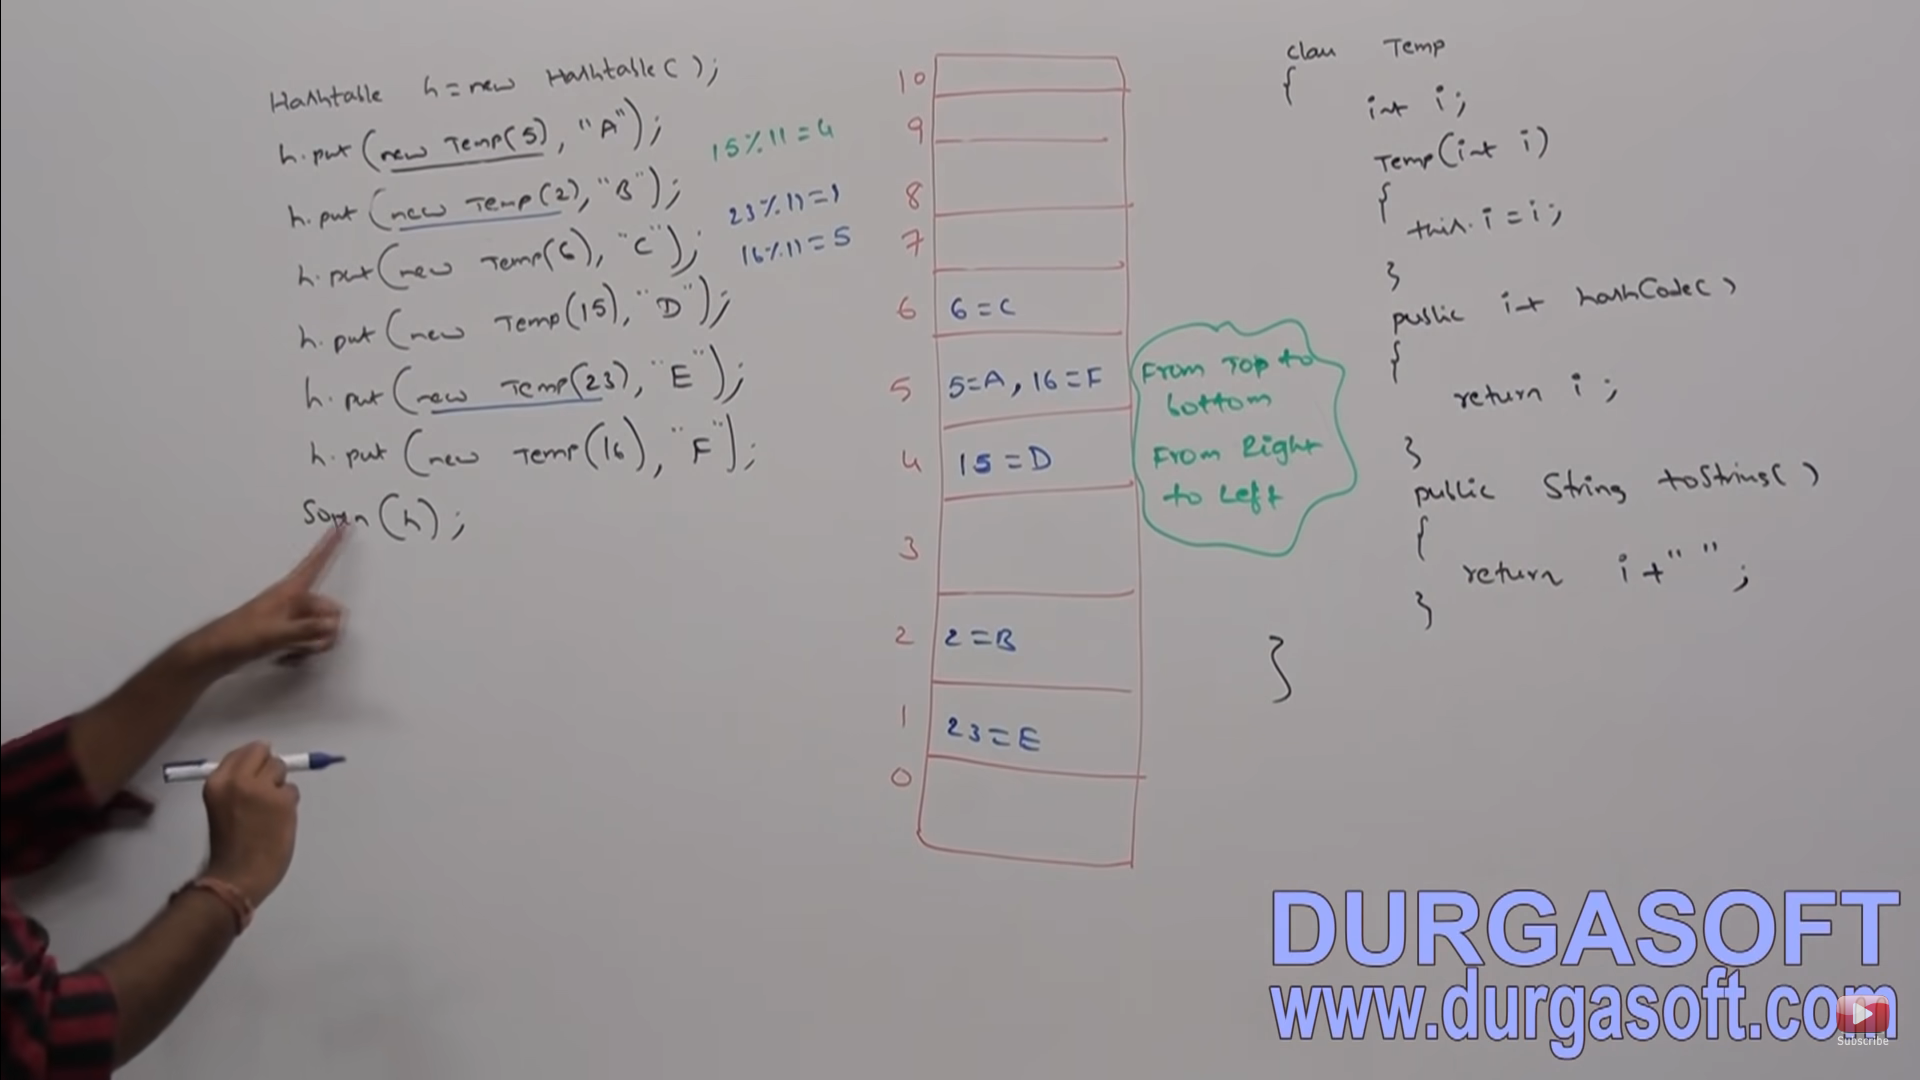 Hashtable h = new Hashtable( );
h.put (new Temp(5), "A");
h.put (new Temp(2), "B");
h.put (new Temp(6), "C");
h.put (new Temp(15), "D");
h.put (new Temp(23), "E");
h.put (new Temp(16), "F");
Sopln (h);
15%11=4
23%11=1
16%11=5
10
9
8
7
6 6=C
5 5=A, 16=F
4 15=D
3
2 2=B
1 23=E
0
From Top to
bottom
From Right
to Left
class Temp
{
int i;
Temp(int i)
{
this.i=i;
}
public int hashCode( )
{
return i;
}
public String toString( )
{
return i+" ";
}
}
DURGASOFT
www.durgasoft.com
Subscribe